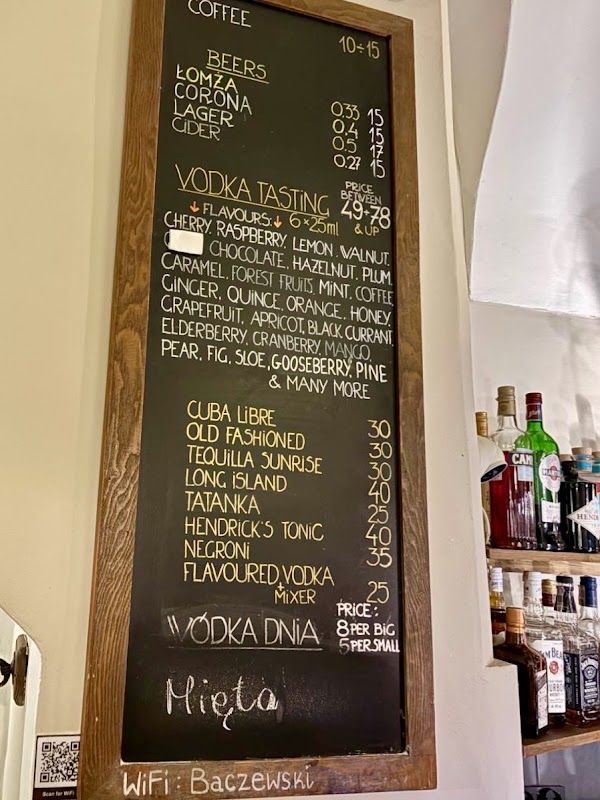 COFFEE
10÷15
BEERS
ŁOMŻA 0.33 15
CORONA 0.4 15
LAGER 0.5 17
CiDER 0.27 15
VODKA TASTING
PRICE BETWEEN
49÷78
& UP
↓ FLAVOURS: ↓ 6×25ml
CHERRY, RASPBERRY, LEMON, WALNUT,
CHOCOLATE, HAZELNUT, PLUM,
CARAMEL, FOREST FRUITS, MiNT, COFFEE
GiNGER, QUINCE, ORANGE, HONEY,
GRAPEFRUiT, APRiCOT, BLACK CURRANT,
ELDERBERRY, CRANBERRY, MANGO,
PEAR, FiG, SLOE, GOOSEBERRY, PINE
& MANY MORE
CUBA LiBRE 30
OLD FASHIONED 30
TEQUiLLA SUNRiSE 30
LONG iSLAND 40
TATANKA 25
HENDRiCK'S TONiC 40
NEGRONi 35
FLAVOURED VODKA
+ MiXER 25
WÓDKA DNiA
PRiCE:
8 PER BiG
5 PER SMALL
Mięta
WiFi: Baczewski
Scan for WiFi
CAM
MARTINI
HENDR
JIM BEAM